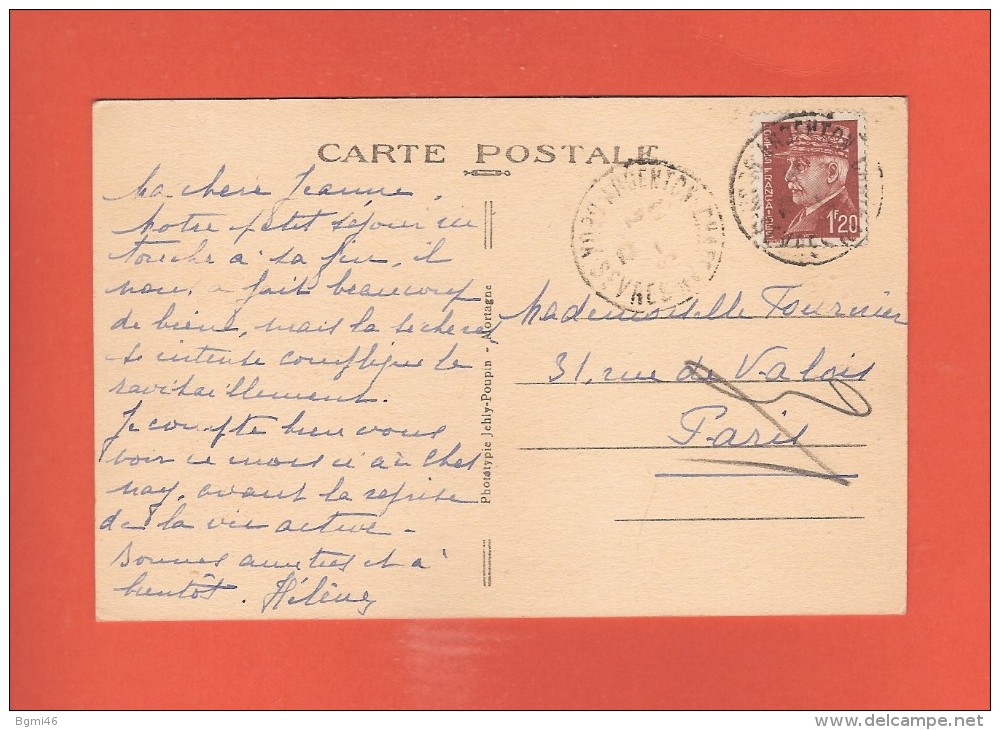 CARTE POSTALE
Ma chère Jeanne,
Notre petit séjour ici
touche à sa fin, il
nous a fait beaucoup
de bien, mais la sécheresse
si intense complique le
ravitaillement.
Je compte bien vous
voir ce mois ci au Ches
nay, avant la reprise
de la vie active -
Bonnes amitiés et à
bientôt. Hélène
Phototypie Jehly-Poupin - Mortagne
ARGENTON CHATEAU
DEUX SEVRES
POSTES FRANÇAISES
1F20
Mademoiselle Fournier
31, rue de Valois
Paris
Bgmi46
delcampe.net